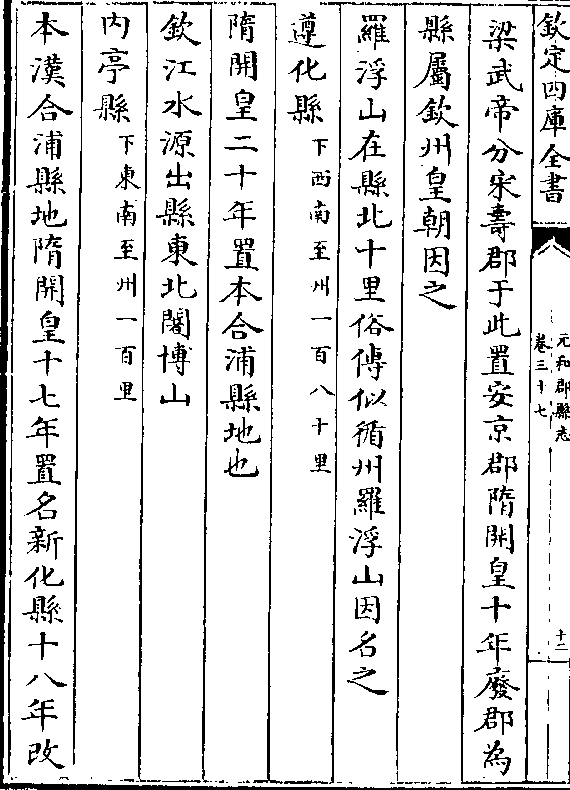 欽定四庫全書
元和郡縣志
卷三十七
十二
梁武帝分宋壽郡于此置安京郡隋開皇十年廢郡為
縣屬欽州皇朝因之
羅浮山在縣北十里俗傳似循州羅浮山因名之
遵化縣下西南至州一百八十里
隋開皇二十年置本合浦縣地也
欽江水源出縣東北闍博山
内亭縣下東南至州一百里
本漢合浦縣地隋開皇十七年置名新化縣十八年改